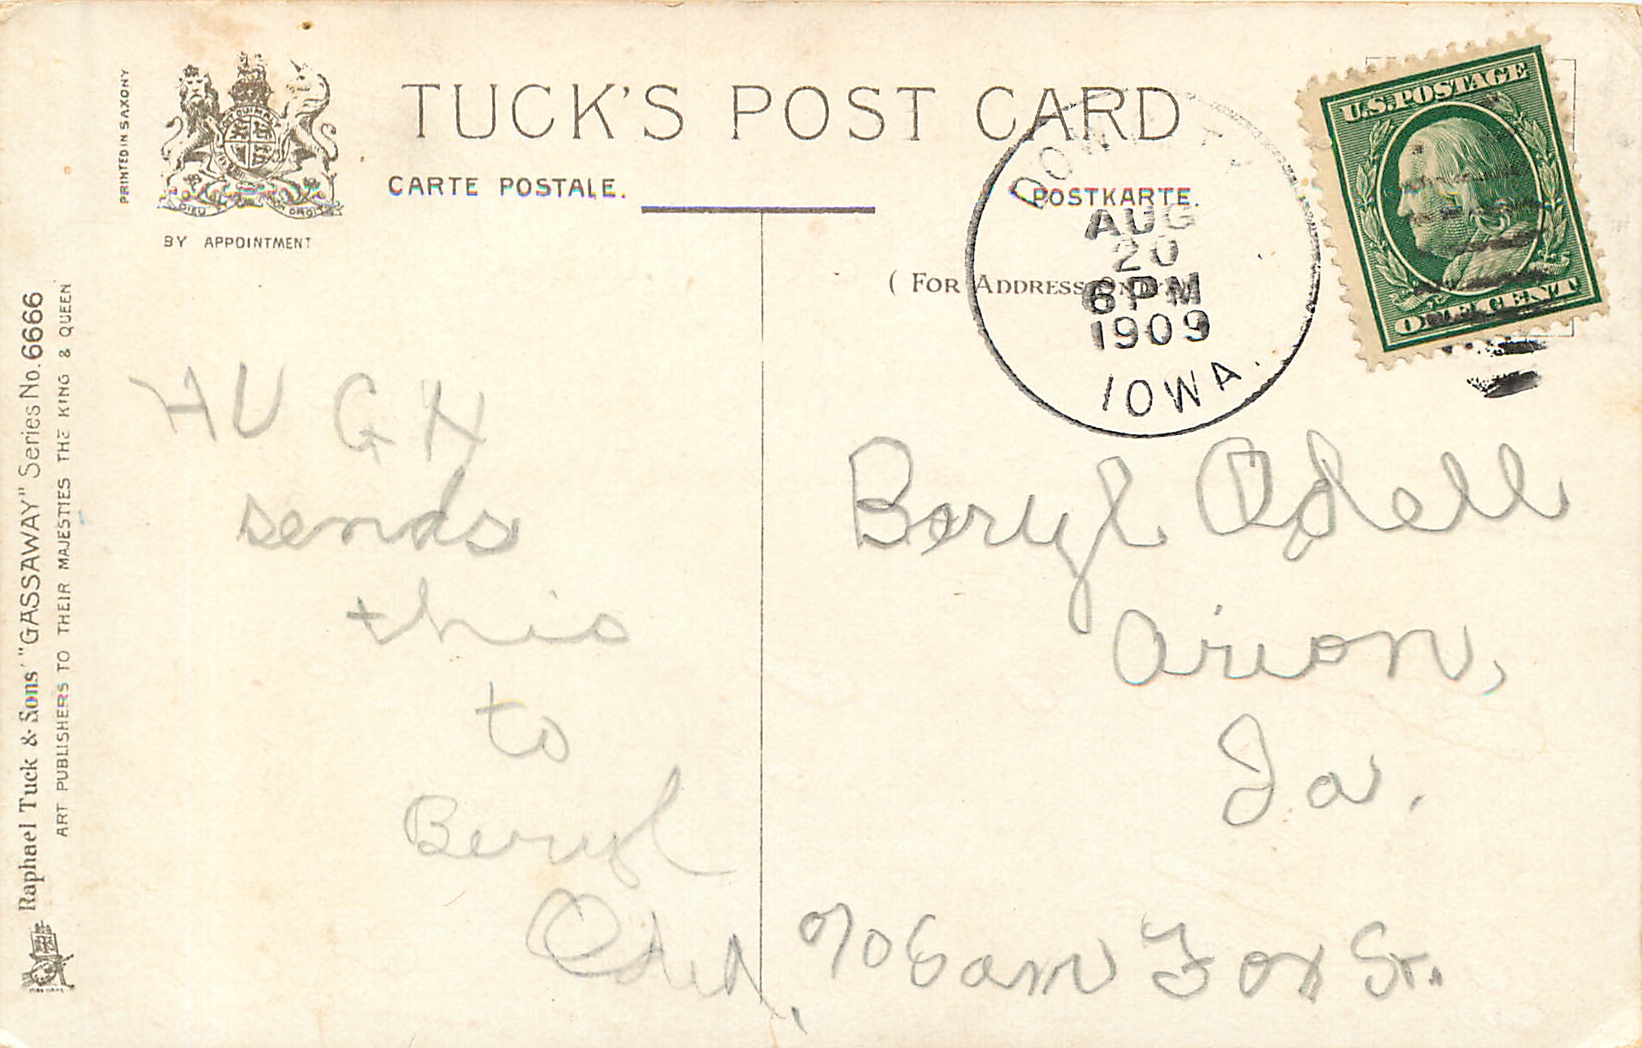 PRINTED IN SAXONY
DIEU ET MON DROIT
BY APPOINTMENT
TUCK'S POST CARD
CARTE POSTALE.
POSTKARTE.
( FOR ADDRESS ONLY
DOW CITY
AUG
20
6 PM
1909
IOWA.
U.S. POSTAGE
ONE CENT
Raphael Tuck & Sons' "GASSAWAY" Series No. 6666
ART PUBLISHERS TO THEIR MAJESTIES THE KING & QUEEN
HUGH
sends
this
to
Beryl
Odell.
Beryl Odell
Arion,
Ia.
℅ Sam Fox Sr.